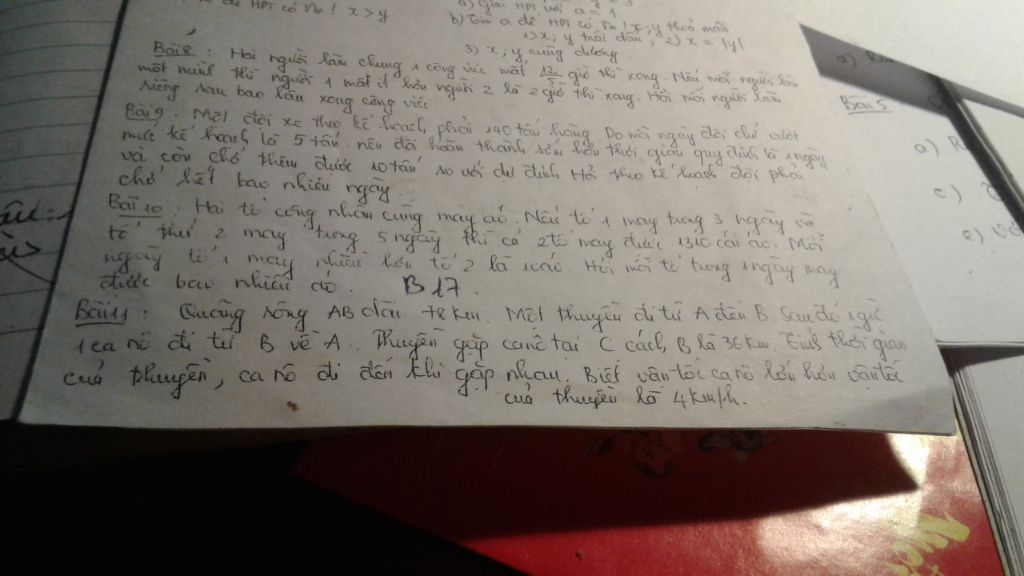 để HPT có No ! x > y
a) Giải HPT với a = 1
b) Tìm a để HPT có No ! x, y thoả mãn
1) x, y trái dấu, 2) x = |y|
3) x, y cùng dương
Bài 8 : Hai người làm chung 1 công việc mất 12/5 giờ thì xong. Nếu mỗi người làm
một mình thì người 1 mất ít hơn người 2 là 2 giờ thì xong. Hỏi mỗi người làm
riêng sau bao lâu xong công việc
Bài 9 : Một đội xe theo kế hoạch phải 140 tấn hàng. Do mỗi ngày đội chở vượt
mức kế hoạch là 5 tấn nên đội hoàn thành sớm hơn thời gian quy định là 1 ngày
và còn chở thêm được 10 tấn so với dự định. Hỏi theo kế hoạch đội phải
chở hết bao nhiêu ngày
Bài 10 : Hai tổ công nhân cùng may áo. Nếu tổ 1 may trong 3 ngày và
tổ thứ 2 may trong 5 ngày thì cả 2 tổ may được 1310 cái áo. Mỗi
ngày tổ 1 may nhiều hơn tổ 2 là 10 áo. Hỏi mỗi tổ trong 1 ngày may
được bao nhiêu áo. B17.
Bài 11 : Quãng sông AB dài 78 km. Một thuyền đi từ A đến B. Sau đó 1 giờ
1 ca nô đi từ B về A. Thuyền gặp ca nô tại C cách B là 36 km. Tính thời gian
của thuyền, ca nô đi đến khi gặp nhau. Biết vận tốc ca nô lớn hơn vận tốc
của thuyền là 4 km/h.
Bài 5
a)
c)
e)